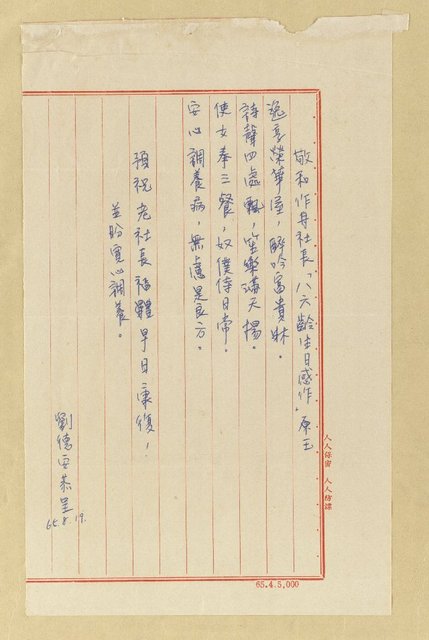 敬和作舟社長「八六齡生日感作」原玉
逸享榮華屋，醉吟富貴牀。
詩聲四處飄，笙樂滿天揚。
使女奉三餐，奴僕侍日常。
安心調養病，無慮是良方。
預祝老社長福體早日康復，
並盼寬心調養。
劉德安恭呈
65.8.19.
人人保密 人人防諜
65.4.5,000